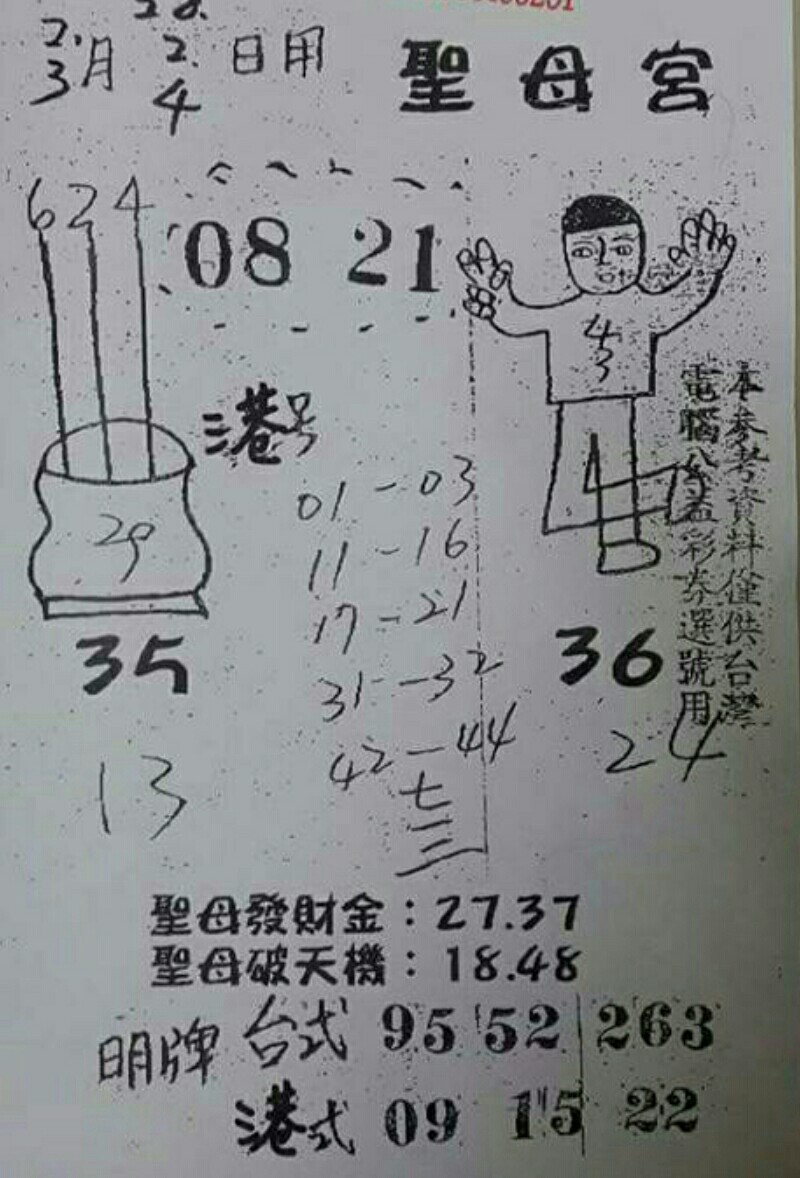 28.
2. 2. 日用
3月 4
聖母宮
624
08 21
43
港号
29
01-03
11-16
17-21
31-32
42-44
七
二
三
35
36
13
24
本參考資料僅供台灣
電腦公益彩券選號用
聖母發財金:27.37
聖母破天機:18.48
明牌 台式 95 52 263
港式 09 15 22